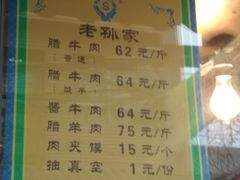 S
老孙家
腊牛肉 62元/斤
(普通)
腊牛肉 64元/斤
(腱子)
酱牛肉 64元/斤
腊羊肉 75元/斤
肉夹馍 15元/个
抽真空 1元/份